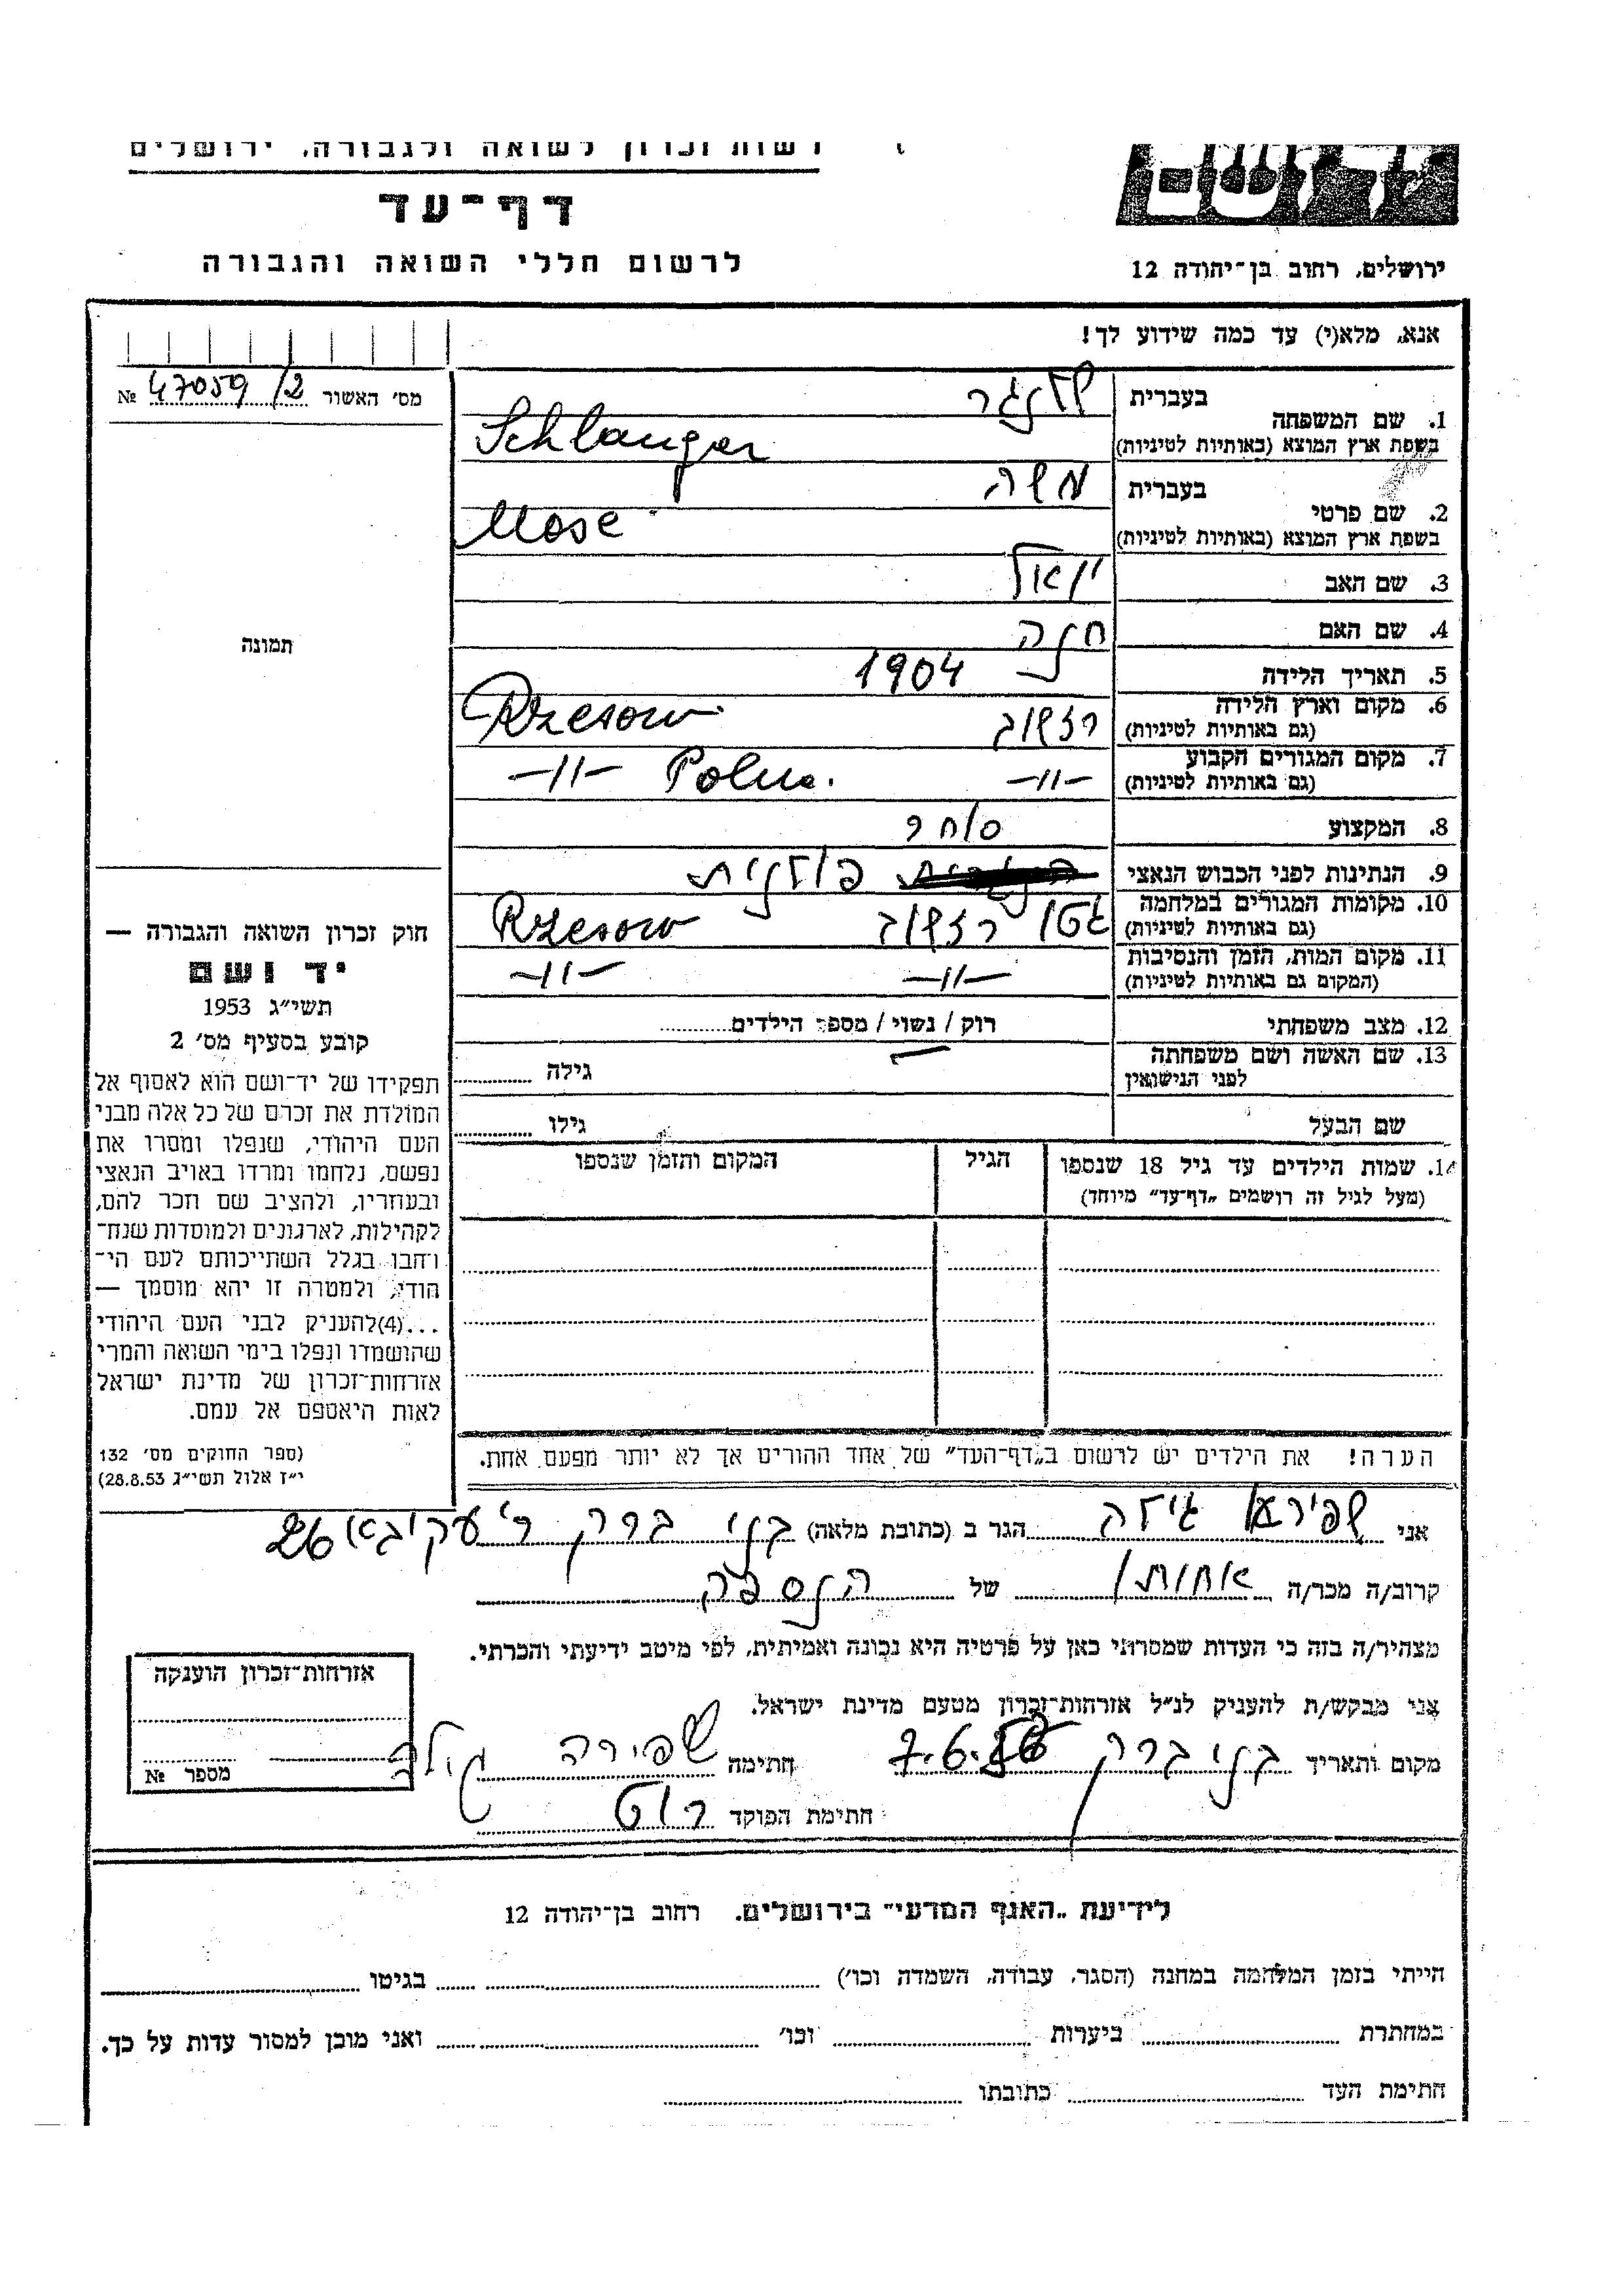 רשות זכרון לשואה ולגבורה, ירושלים
דף-עד
לרשום חללי השואה והגבורה
ושם
ירושלים, רחוב בן-יהודה 12
אנא, מלא(י) עד כמה שידוע לך!
מס׳ האשור 47059/2 №
תמונה
1. שם המשפחה בעברית שלנגר
בשפת ארץ המוצא (באותיות לטיניות) Schlanger
2. שם פרטי בעברית משה
בשפת ארץ המוצא (באותיות לטיניות) Mose
3. שם האב יואל
4. שם האם חנה
5. תאריך הלידה 1904
6. מקום וארץ הלידה (גם באותיות לטיניות) רזשוב Rzesow
7. מקום המגורים הקבוע (גם באותיות לטיניות) -11- Polin. -11-
8. המקצוע סוחר
9. הנתינות לפני הכבוש הנאצי פולנית
10. מקומות המגורים במלחמה (גם באותיות לטיניות) גטו רזשוב Rzesow
11. מקום המות, הזמן והנסיבות (המקום גם באותיות לטיניות) -11- -11-
12. מצב משפחתי רוק / נשוי / מספר הילדים
13. שם האשה ושם משפחתה לפני הנישואין גילה
שם הבעל גילו
14. שמות הילדים עד גיל 18 שנספו הגיל המקום והזמן שנספו
(מעל לגיל זה רושמים „דף-עד״ מיוחד)
הערה! את הילדים יש לרשום ב„דף-העד״ של אחד ההורים אך לא יותר מפעם אחת.
חוק זכרון השואה והגבורה —
יד ושם
תשי״ג 1953
קובע בסעיף מס׳ 2
תפקידו של יד-ושם הוא לאסוף אל
המולדת את זכרם של כל אלה מבני
העם היהודי, שנפלו ומסרו את
נפשם, נלחמו ומרדו באויב הנאצי
ובעוזריו, ולהציב שם וזכר להם,
לקהילות, לארגונים ולמוסדות שנח-
רבו בגלל השתייכותם לעם הי-
הודי, ולמטרה זו יהא מוסמך —
...(4) להעניק לבני העם היהודי
שהושמדו ונפלו בימי השואה והמרי
אזרחות-זכרון של מדינת ישראל
לאות היאספם אל עמם.
(ספר החוקים מס׳ 132
י״ז אלול תשי״ג 28.8.53)
אני שפירא גילה הגר ב (כתובת מלאה) בני ברק ר׳ עקיבא 26
קרוב/ה מכר/ה אחותו של הנספה
מצהיר/ה בזה כי העדות שמסרתי כאן על פרטיה היא נכונה ואמיתית, לפי מיטב ידיעתי והכרתי.
אני מבקש/ת להעניק לנ״ל אזרחות-זכרון מטעם מדינת ישראל.
מקום ותאריך בני ברק 7.6. חתימה שפירה גילה
חתימת הפוקד רוט
אזרחות-זכרון הוענקה
מספר №
לידיעת „האגף המדעי״ בירושלים, רחוב בן-יהודה 12
הייתי בזמן המלחמה במחנה (הסגר, עבודה, השמדה וכו׳) בגיטו
במחתרת ביערות וכו׳ ואני מוכן למסור עדות על כך.
חתימת העד כתובתו